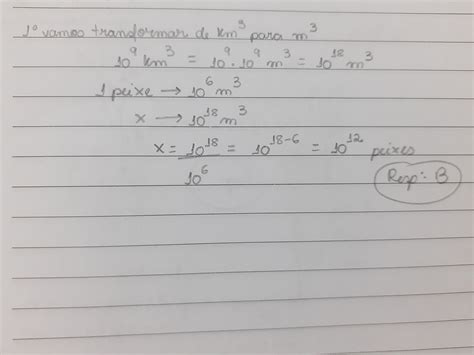 1º vamos transformar de km³ para m³
10⁹ km³ = 10⁹ · 10⁹ m³ = 10¹⁸ m³
1 peixe → 10⁶ m³
x → 10¹⁸ m³
x = 10¹⁸ = 10¹⁸⁻⁶ = 10¹² peixes
10⁶
Resp: B